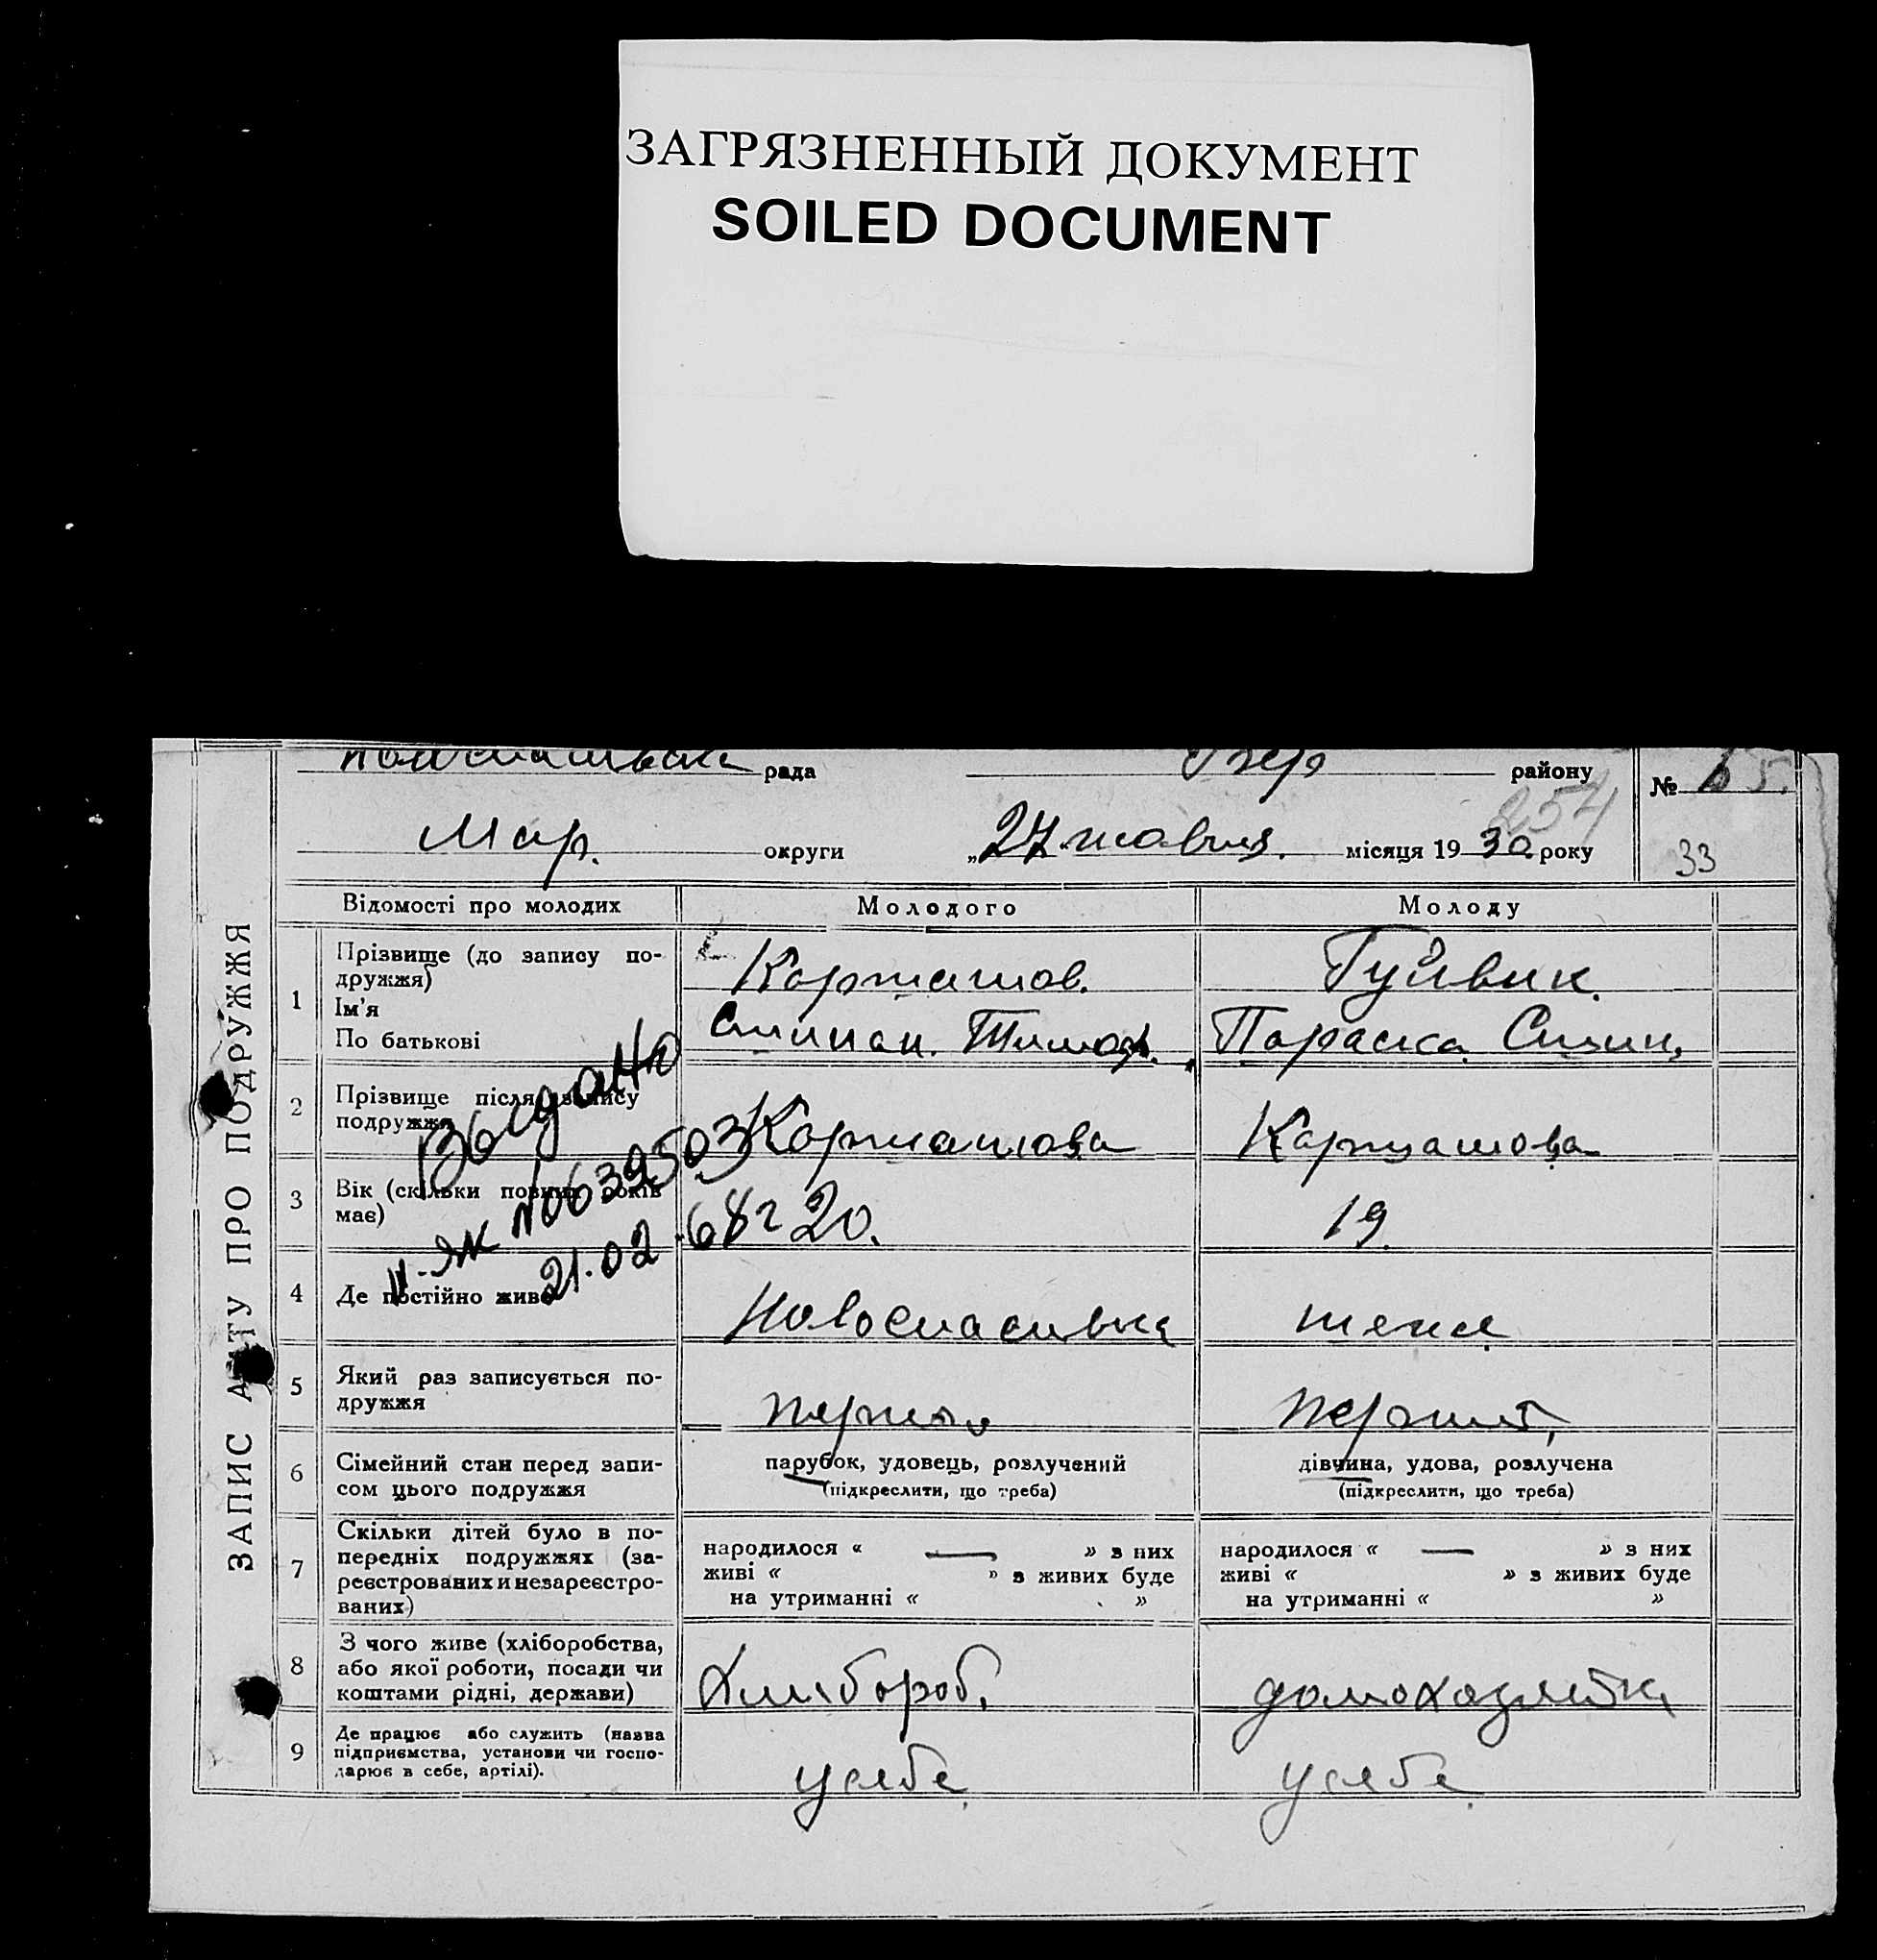 ЗАГРЯЗНЕННЫЙ ДОКУМЕНТ
SOILED DOCUMENT
рада району № 65.
254
Мар. округи „27 жовтня. місяця 1930 року 33
ЗАПИС АКТУ ПРО ПОДРУЖЖЯ
Відомості про молодих Молодого Молоду
1 Прізвище (до запису по-
дружжя)
Ім'я
По батькові
Гуйвик.
Параска
2 Прізвище після запису
подружжя
Видано
ІІ-ЯК №0639503
21.02.68г
3 Вік (скільки повних років
має)
20. 19.
4 Де постійно живе
Новоспасівка теж
5 Який раз записується по-
дружжя
6 Сімейний стан перед запи-
сом цього подружжя
парубок, удовець, розлучений
(підкреслити, що треба)
дівчина, удова, розлучена
(підкреслити, що треба)
7 Скільки дітей було в по-
передніх подружжях (за-
реєстрованих и незареєстро-
ваних)
народилося « — » з них
живі « » з живих буде
на утриманні « »
народилося « — » з них
живі « » з живих буде
на утриманні « »
8 З чого живе (хліборобства,
або якої роботи, посади чи
коштами рідні, держави)
Хлибороб. домохозяйка
9 Де працює або служить (назва
підприємства, установи чи госпо-
дарює в себе, артілі).
усебе усебе